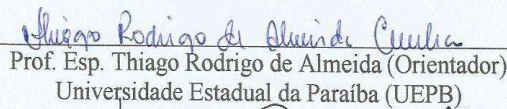 Thiago Rodrigo de Almeida Cunha
Prof. Esp. Thiago Rodrigo de Almeida (Orientador)
Universidade Estadual da Paraíba (UEPB)